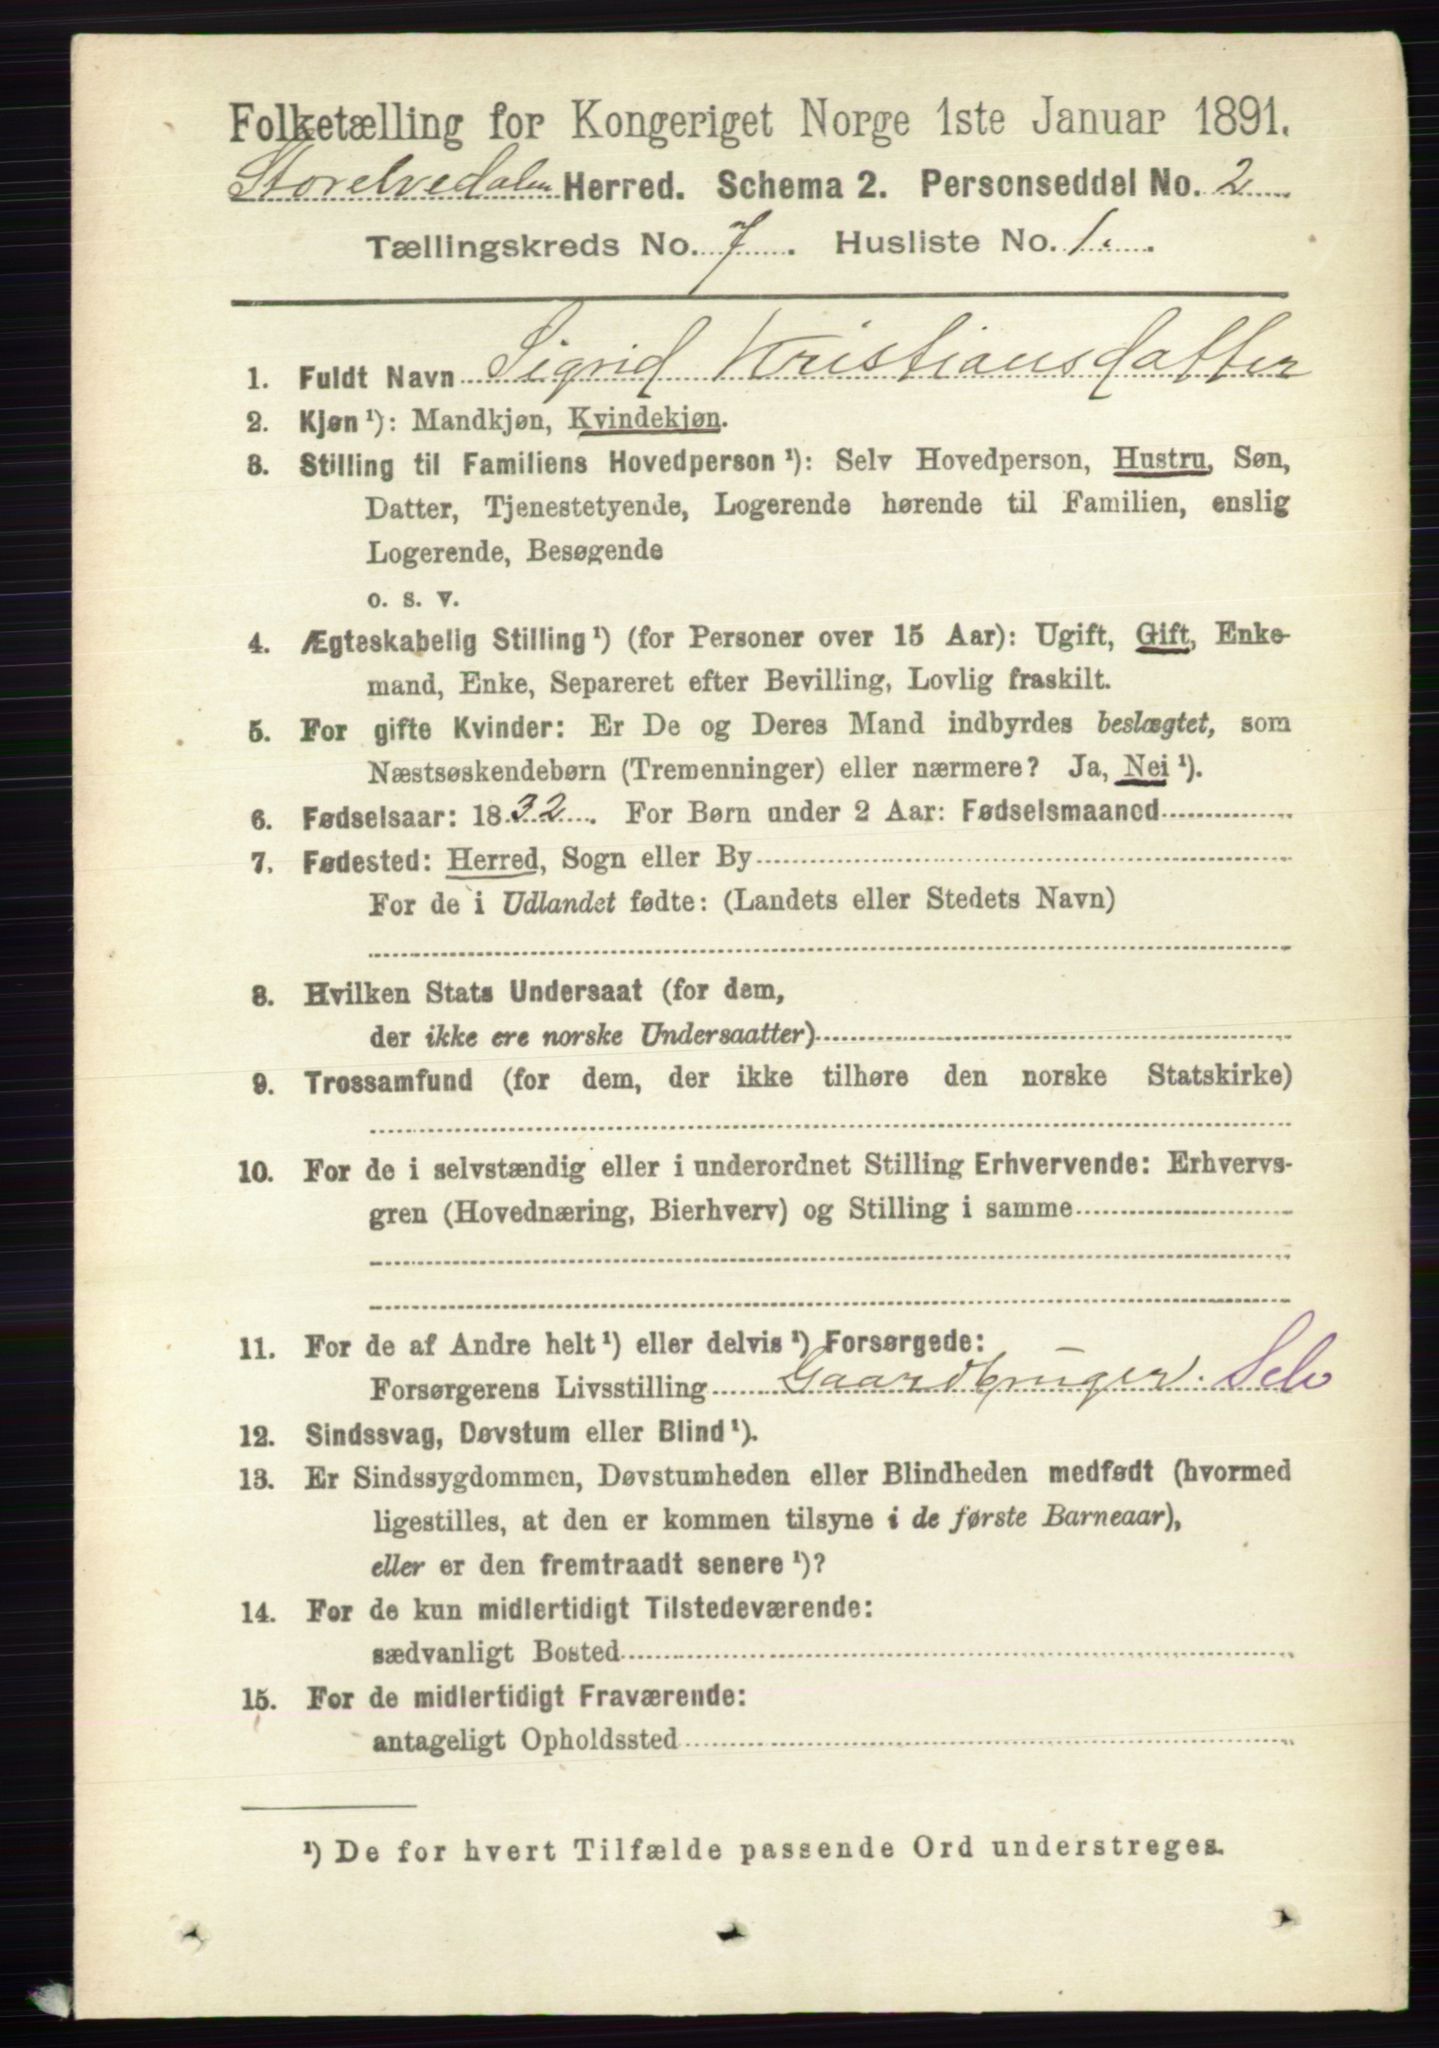 Folketælling for Kongeriget Norge 1ste Januar 1891.
Storelvedalen Herred. Schema 2. Personseddel No. 2
Tællingskreds No. 7. Husliste No. 1.
1. Fuldt Navn Sigrid Kristiansdatter
2. Kjøn ¹): Mandkjøn, Kvindekjøn.
3. Stilling til Familiens Hovedperson ¹): Selv Hovedperson, Hustru, Søn,
Datter, Tjenestetyende, Logerende hørende til Familien, enslig
Logerende, Besøgende
o. s. v.
4. Ægteskabelig Stilling ¹) (for Personer over 15 Aar): Ugift, Gift, Enke-
mand, Enke, Separeret efter Bevilling, Lovlig fraskilt.
5. For gifte Kvinder: Er De og Deres Mand indbyrdes beslægtet, som
Næstsøskendebørn (Tremenninger) eller nærmere? Ja, Nei ¹).
6. Fødselsaar: 1832. For Børn under 2 Aar: Fødselsmaaned
7. Fødested: Herred, Sogn eller By
For de i Udlandet fødte: (Landets eller Stedets Navn)
8. Hvilken Stats Undersaat (for dem,
der ikke ere norske Undersaatter)
9. Trossamfund (for dem, der ikke tilhøre den norske Statskirke)
10. For de i selvstændig eller i underordnet Stilling Erhvervende: Erhvervs-
gren (Hovednæring, Bierhverv) og Stilling i samme
11. For de af Andre helt ¹) eller delvis ¹) Forsørgede:
Forsørgerens Livsstilling Gaardbruger. Selv
12. Sindssvag, Døvstum eller Blind ¹).
13. Er Sindssygdommen, Døvstumheden eller Blindheden medfødt (hvormed
ligestilles, at den er kommen tilsyne i de første Barneaar),
eller er den fremtraadt senere ¹)?
14. For de kun midlertidigt Tilstedeværende:
sædvanligt Bosted
15. For de midlertidigt Fraværende:
antageligt Opholdssted
¹) De for hvert Tilfælde passende Ord understreges.